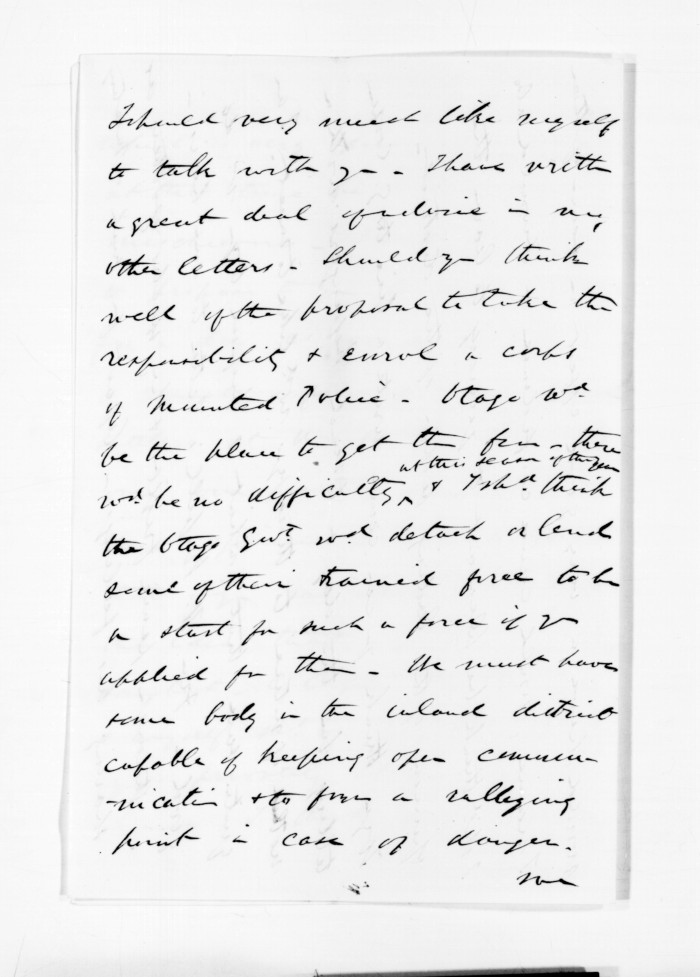 I should very much like myself
to talk with you - I have written
a great deal of advice in my
other letters - Should you think
well of the proposal to take the
responsibility & enrol a corps
of Mounted Police - Otago wd
be the place to get them from - there
at this season of the year
wd be no difficulty & I shd think
the Otago Govt wd detach or lend
some of their trained force to be
a start for such a force if you
applied for them - We must have
some body in the inland district
capable of keeping open commu-
-nication & to form a rallying
point in case of danger.